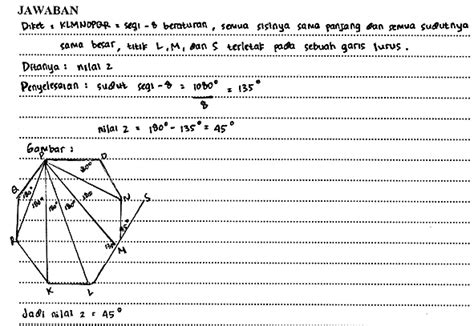 JAWABAN
Diket = KLMNOPQR = segi - 8 beraturan, semua sisinya sama panjang dan semua sudutnya
sama besar, titik L, M, dan S terletak pada sebuah garis lurus.
Ditanya : nilai z
Penyelesaian : sudut segi-8 = 1080° / 8 = 135°
nilai z = 180° - 135° = 45°
Gambar :
P O
180°
Q 180° 180° 180° 180° 180 N S
R 135° M
K L
Jadi nilai z = 45°